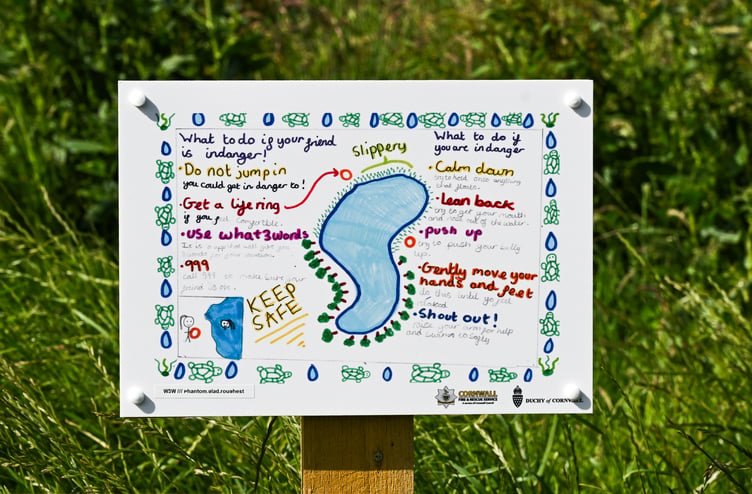 What to do if your friend
is indanger!
• Do not Jump in
you could get in danger to!
• Get a life ring
if you
• use what3words
• 999
call 999 to make sure your
friend is ok.
KEEP
SAFE
slippery
What to do if
you are in danger
• Calm down
try to hold onto anything
that floats.
• Lean back
try to get your mouth
and nose out of the water.
• push up
try to push your belly
up.
• Gently move your
hands and feet
do this until you feel
relaxed
• Shout out!
raise your arm for help
and swim to safty
W3W /// phantom.elad.rowhest
CORNWALL
FIRE & RESCUE SERVICE
DUCHY of CORNWALL